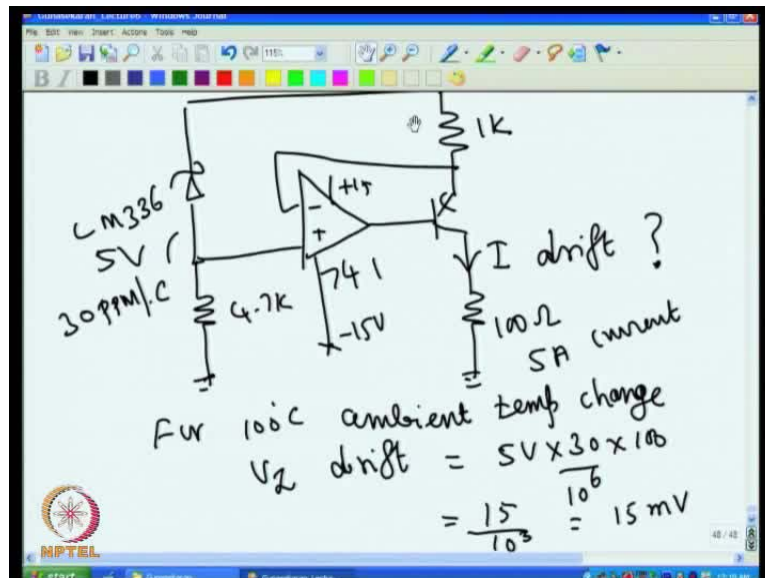 Gunasekaran_Lecture6 - Windows Journal
File Edit View Insert Actions Tools Help
115%
B I
1K
LM336
5V
30 PPM/°C
+15
-
+
741
-15V
4.7K
I drift ?
100Ω
5A current
For 100°C ambient temp change
VZ drift = 5V x 30 x 100
10^6
= 15 = 15 mV
10^3
NPTEL
48 / 48
start